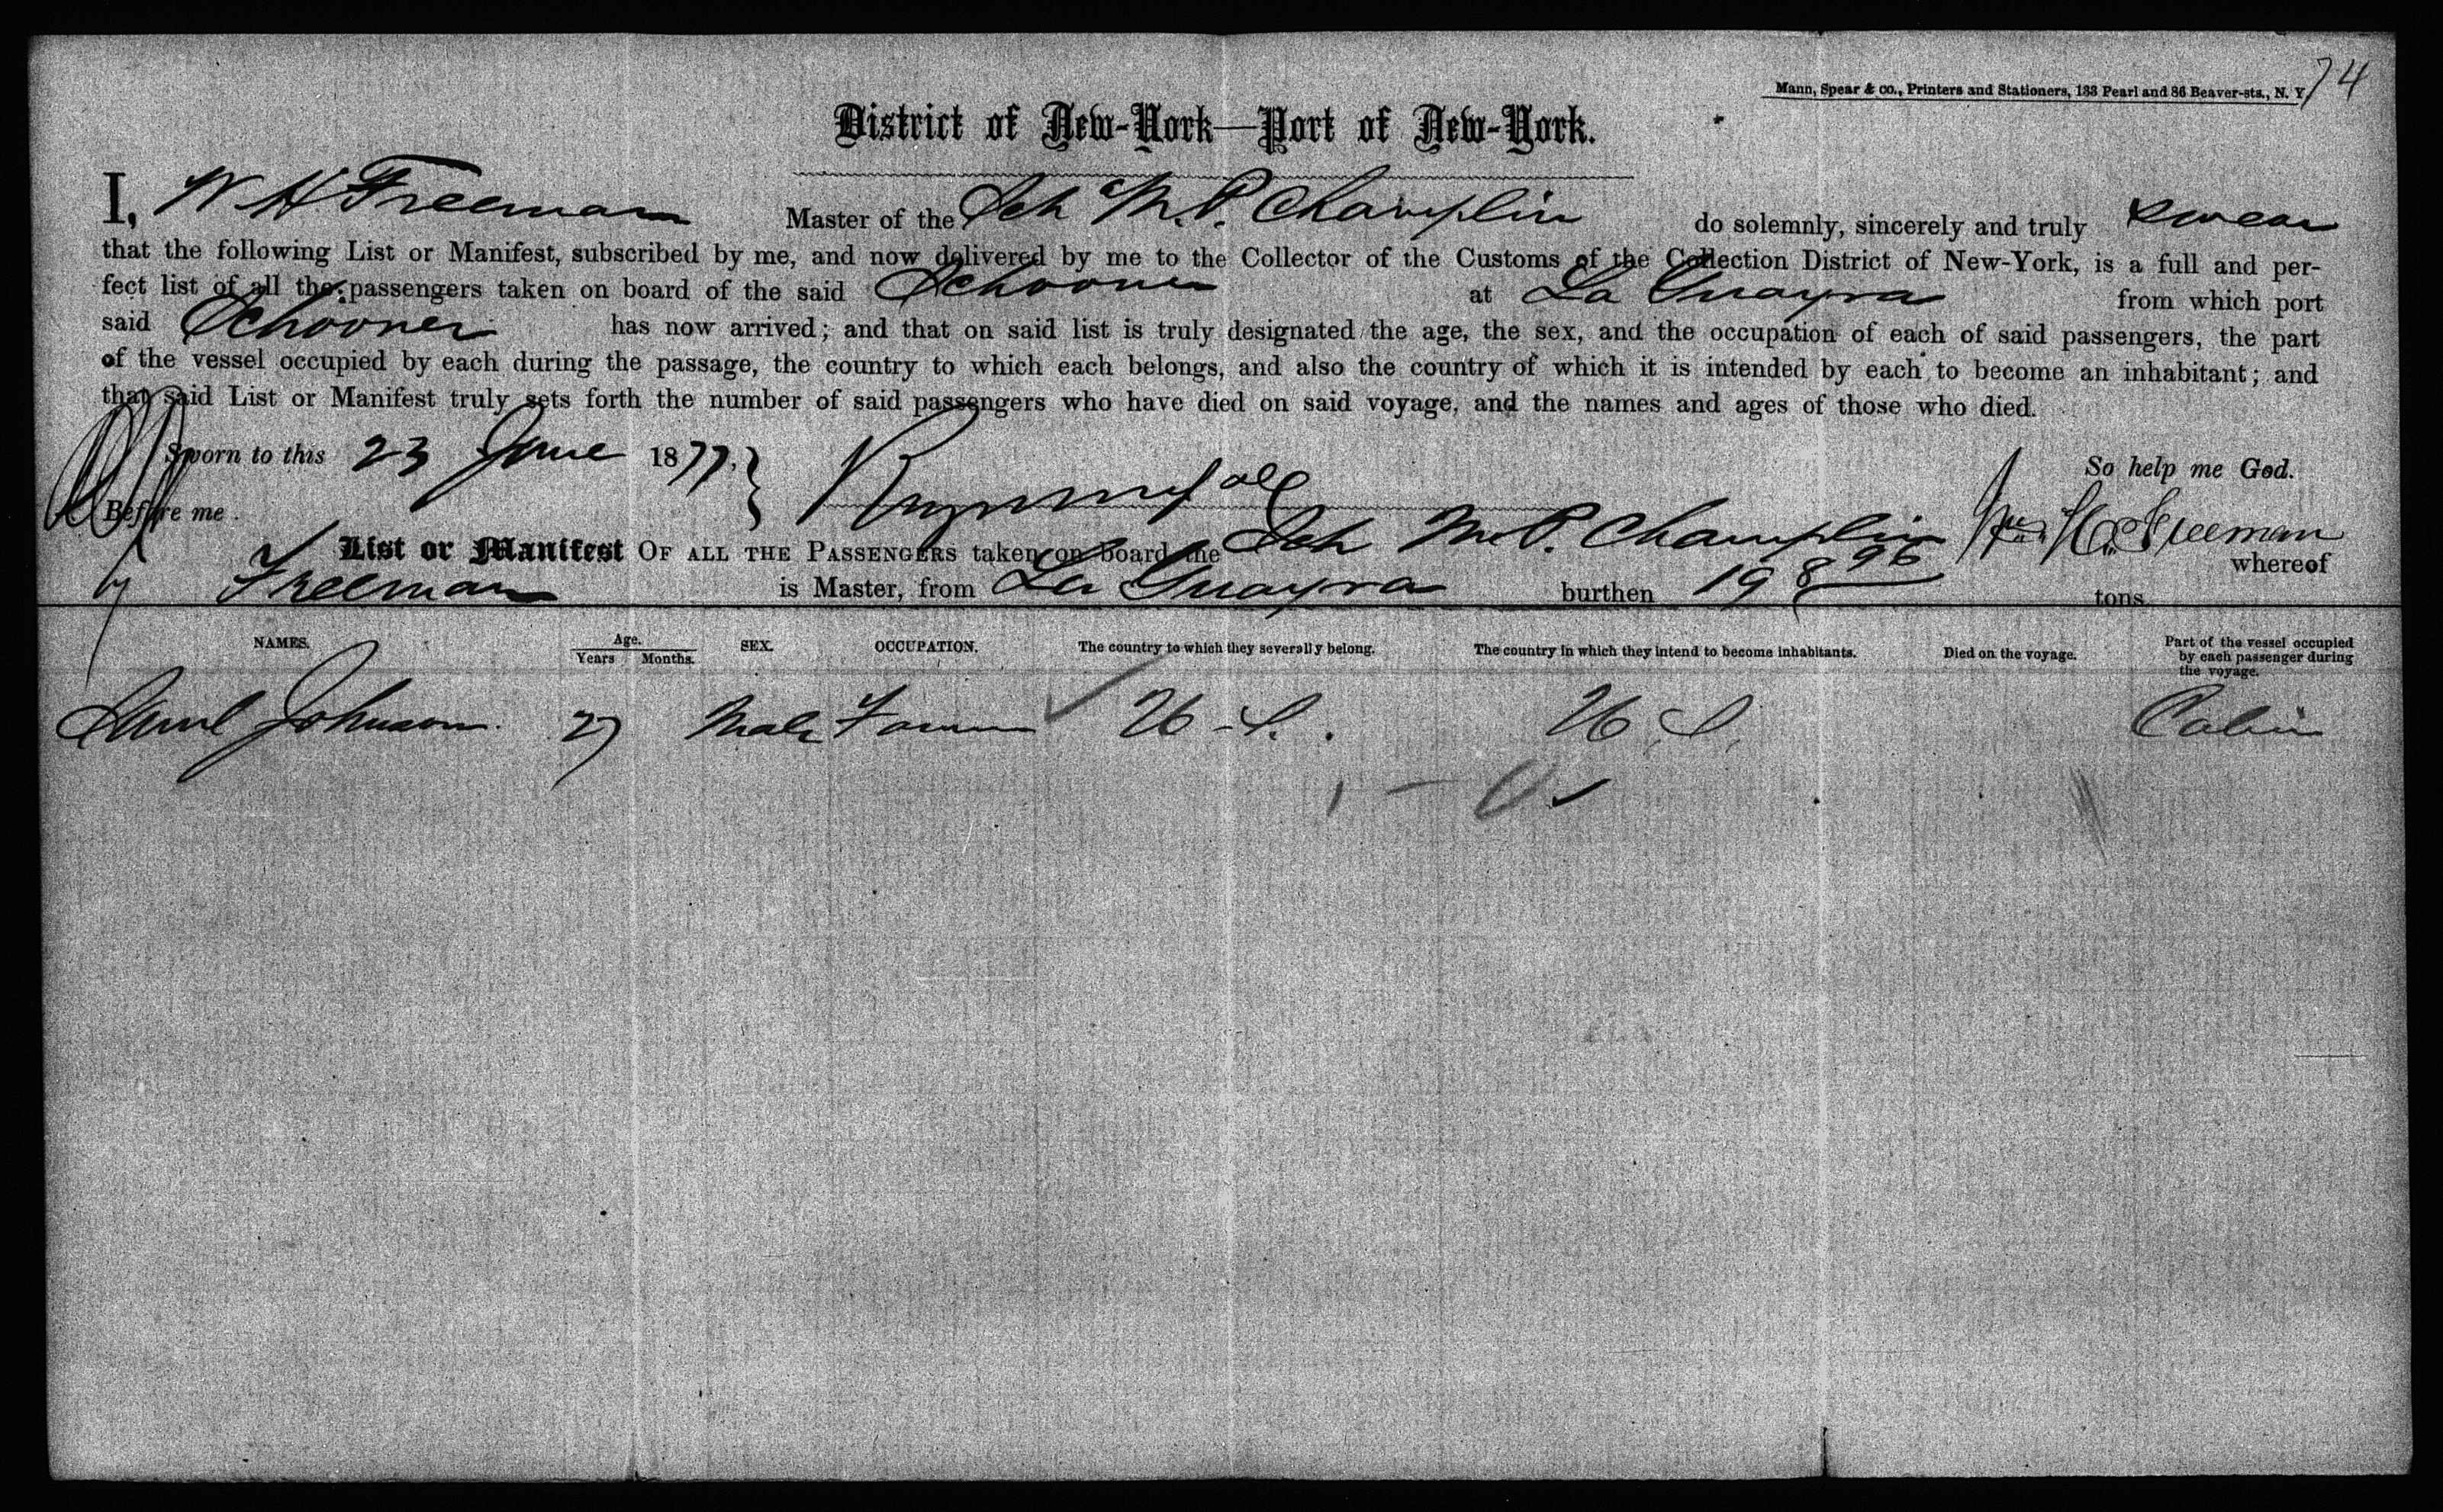 74
Mann, Spear & co., Printers and Stationers, 133 Pearl and 86 Beaver-sts., N. Y.
District of New-York—Port of New-York.
I, W H Freeman Master of the Sch M. P. Champlin do solemnly, sincerely and truly swear
that the following List or Manifest, subscribed by me, and now delivered by me to the Collector of the Customs of the Collection District of New-York, is a full and per-
fect list of all the passengers taken on board of the said Schooner at La Guayra from which port
said Schooner has now arrived; and that on said list is truly designated the age, the sex, and the occupation of each of said passengers, the part
of the vessel occupied by each during the passage, the country to which each belongs, and also the country of which it is intended by each to become an inhabitant; and
that said List or Manifest truly sets forth the number of said passengers who have died on said voyage, and the names and ages of those who died.
Sworn to this 23 June 1877. So help me God.
Before me Wm H. Freeman
List or Manifest OF ALL THE PASSENGERS taken on board the Sch M. P. Champlin whereof
Freeman is Master, from La Guayra burthen 198 96 tons
NAMES. Age. Years Months. SEX. OCCUPATION. The country to which they severally belong. The country in which they intend to become inhabitants. Died on the voyage. Part of the vessel occupied by each passenger during the voyage.
Saml Johnson. 27 Male U-S. U.S. Cabin
1 - 0 ✓